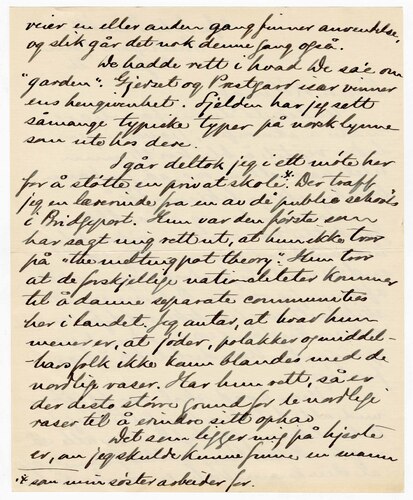 veier en eller anden gang finner anvendelse,
og slik går det nok denne gang også.
De hadde rett i hvad De sa e om
"garden". Gjerset og Prestgard især vinner
ens hengivenhet. Sjelden har jeg sett
såmange typiske typer på norsk lynne
som ute hos dere.
I går deltok jeg i ett møte her
for å støtte en privatskole*. Der traff
jeg en lærerinde fra en av de public schools
i Bridgeport. Hun var den første som
har sagt mig rett ut, at hun ikke tror
på "the melting pot theory". Hun tror
at de forskjellige nationaliteter kommer
til å danne separate communities
her i landet. Jeg antar, at hvad hun
mener er, at jøder, polakker og middel-
havsfolk ikke kann blandes med de
nordlige raser. Har hun rett, så er
der desto større grund for de nordlige
raser til å erindre sitt ophav
Det som ligger mig på hjerte
er, om jeg skulde kunne finne en mann
* som min søster arbeider for.